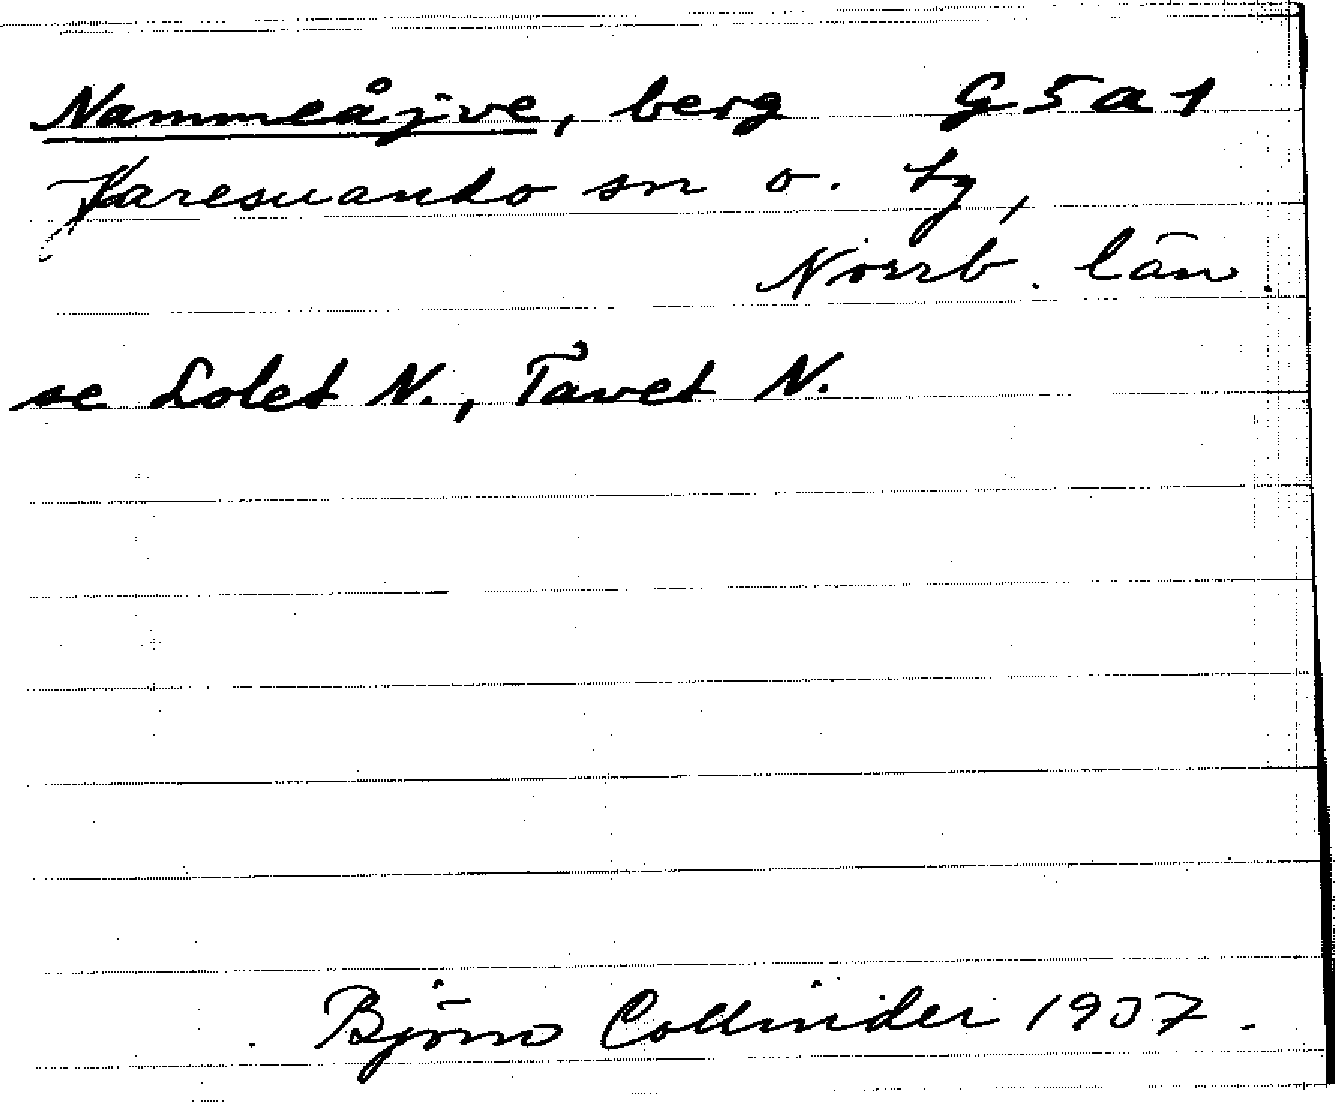 Nammeåjve, berg G5a1
Karesuando sn o. tg,
Norrb. län.
se Lolet N., Tavet N.
Björn Collinder 1937.